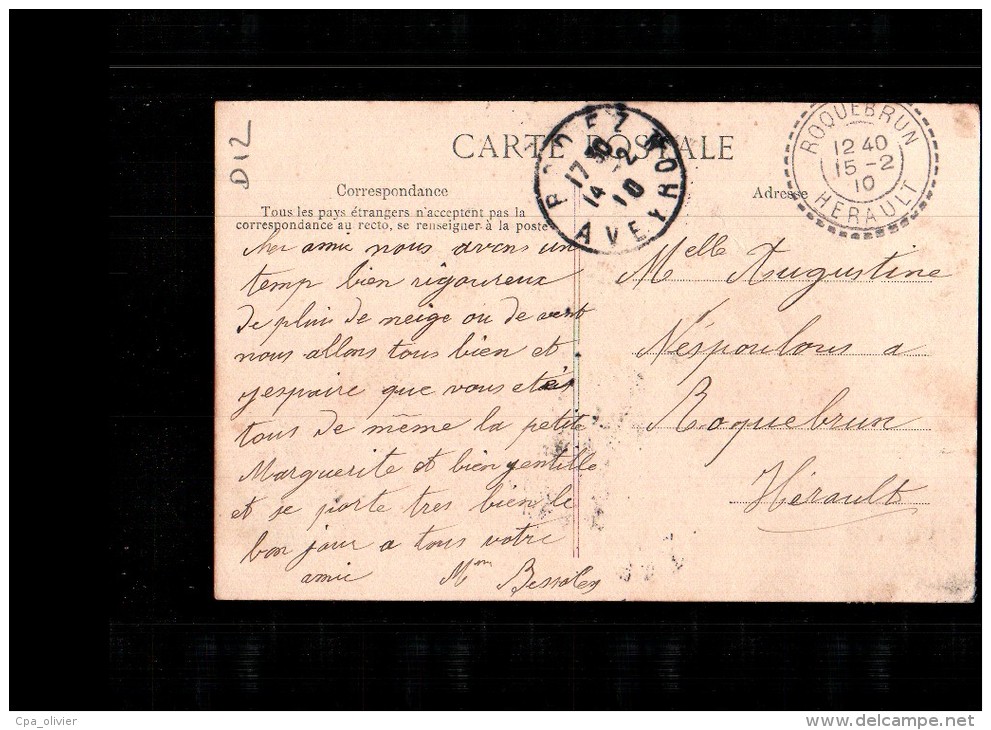 D12
CARTE POSTALE
RODEZ
AVEYRON
17 30
14 -2
10
ROQUEBRUN
12 40
15 -2
10
HERAULT
Correspondance
Tous les pays étrangers n'acceptent pas la
correspondance au recto, se renseigner à la poste
Adresse
Mer amie nous avons un
temp bien rigoureux
de pluie de neige ou de vent
nous allons tous bien et
jespaire que vous etes
tous de même la petite
Marguerite et bien gentille
et se porte tres bien le
bon jour a tous votre
amie Mme
Melle Augustine
a
Roquebrun
Hérault
Cpa_olivier
www.delcampe.net